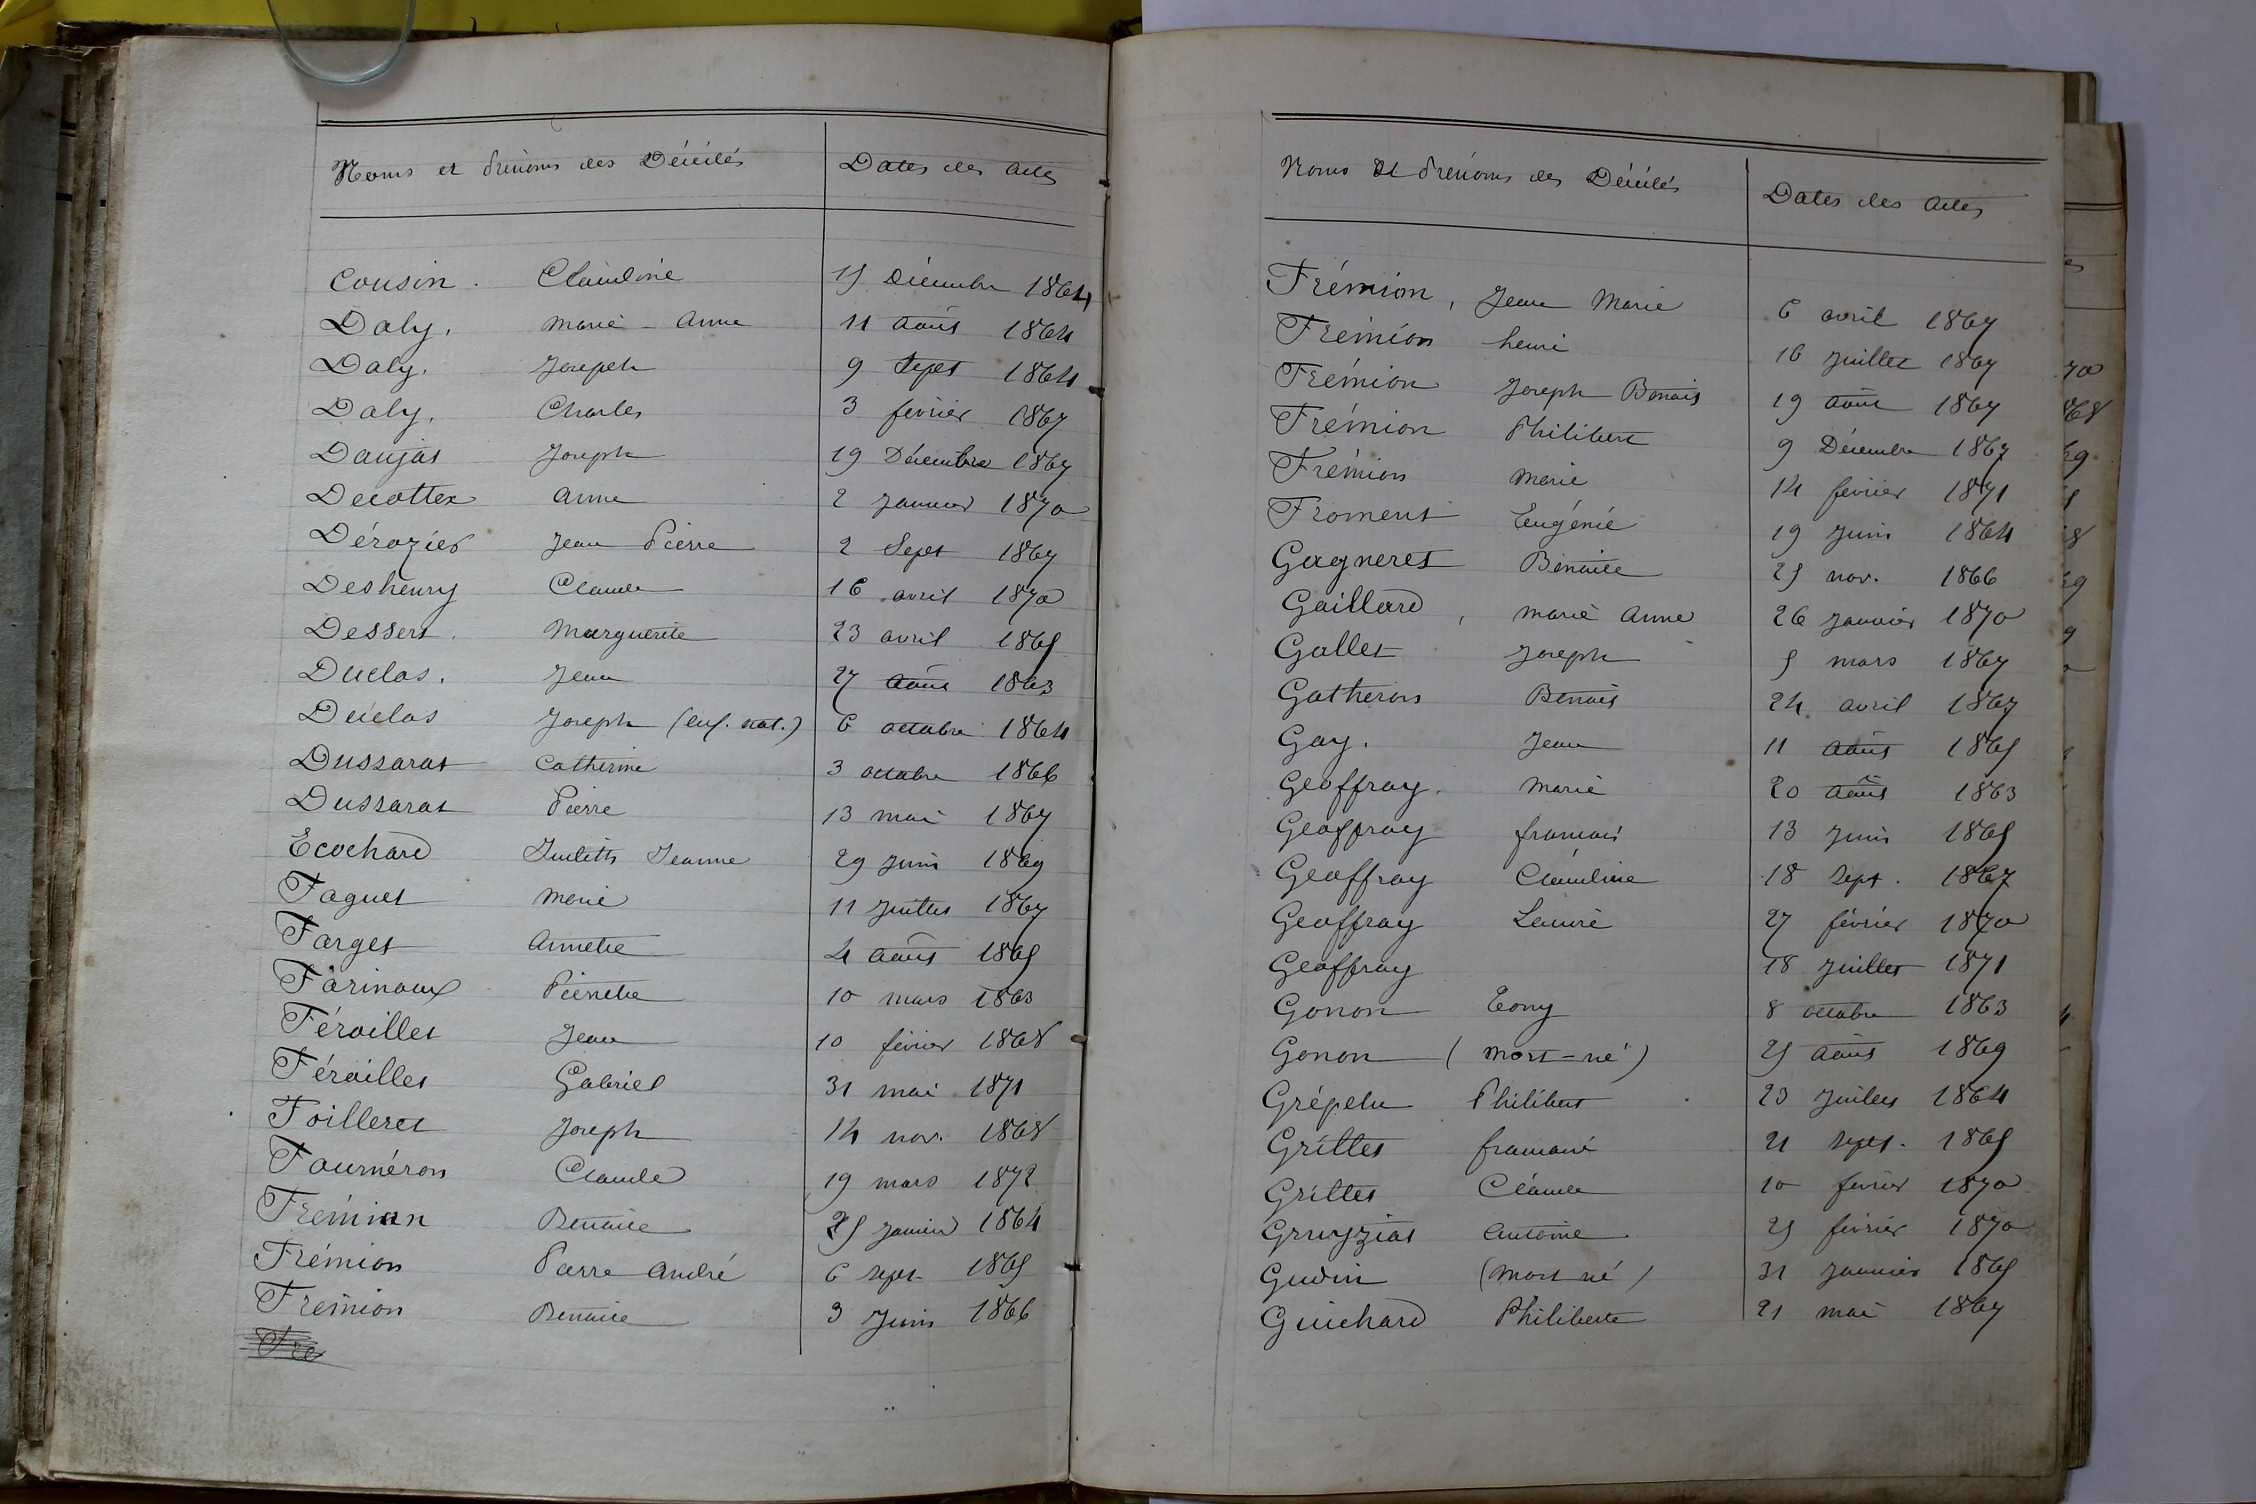 Noms et Prénoms des Décédés Dates des actes
Cousin. Claudine 15 Décembre 1864
Daly. Marie-Anne 11 août 1864
Daly. Joseph 9 Sept 1864
Daly. Charles 3 février 1867
Daujat Joseph 19 Décembre 1867
Decottex Anne 2 Janvier 1870
Dérozier Jean Pierre 2 Sept 1867
Deshenry Claude 16 avril 1870
Dessert. Marguerite 23 avril 1865
Duclos. Jean 27 août 1863
Duclos Joseph (enf. nat.) 6 octobre 1864
Dussarat Catherine 3 octobre 1866
Dussarat Pierre 13 mai 1867
Ecochard Judith Jeanne 29 Juin 1869
Faguet Marie 11 Juillet 1867
Farget Annette 4 août 1865
Farinaux Pierrette 10 mars 1863
Féraillet Jean 10 février 1868
Féraillet Gabriel 31 mai 1871
Foilleret Joseph 14 nov. 1868
Fournéron Claude 19 mars 1872
Frémion Benoite 25 Janvier 1864
Frémion Pierre André 6 sept 1865
Frémion Benoite 3 Juin 1866
Fré
Noms et Prénoms des Décédés Dates des actes
Frémion, Jean Marie 6 avril 1867
Frémion henri 16 Juillet 1867
Frémion Joseph Benoit 19 août 1867
Frémion Philibert 9 Décembre 1867
Frémion Marie 14 février 1871
Froment Eugénie 19 Juin 1864
Gagneret Benoite 25 nov. 1866
Gaillard, Marie Anne 26 Janvier 1870
Gallet Joseph 5 mars 1867
Gatheron Benoit 24 avril 1867
Gay. Jean 11 août 1865
Geoffray. Marie 20 août 1863
Geoffray françois 13 Juin 1865
Geoffray Claudine 18 sept. 1867
Geoffray Laure 27 février 1870
Geoffray 18 Juillet 1871
Gonon Tony 8 octobre 1863
Gonon (mort-né) 25 août 1869
Grépelu Philibert 23 Juillet 1864
Grillet 21 sept. 1865
Grillet Claude 10 février 1870
Gruyziat Antoine 25 février 1870
Gudin (mort né) 31 Janvier 1865
Guichard Philiberte 21 mai 1867